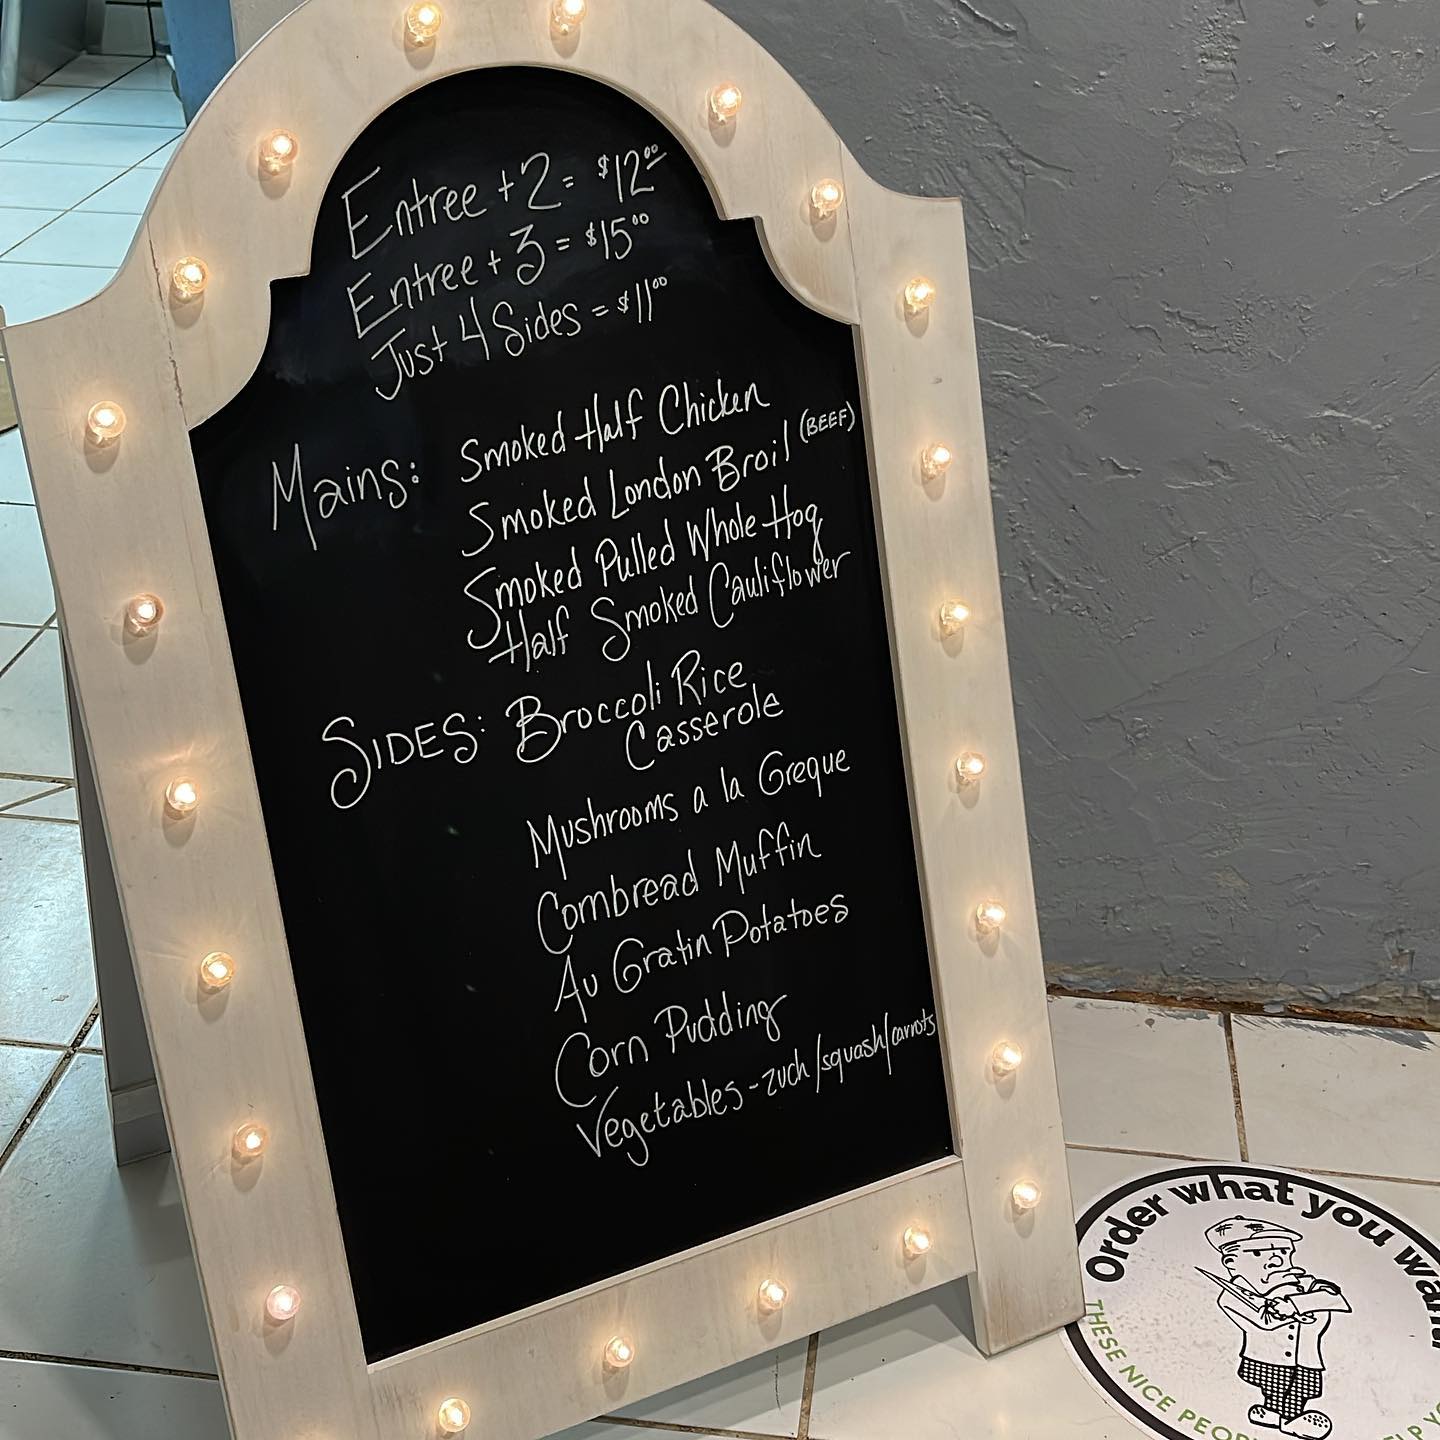 Entree + 2 = $12.00
Entree + 3 = $15.00
Just 4 Sides = $11.00
Mains: Smoked Half Chicken
Smoked London Broil (BEEF)
Smoked Pulled Whole Hog
Half Smoked Cauliflower
SIDES: Broccoli Rice
Casserole
Mushrooms a la Greque
Cornbread Muffin
Au Gratin Potatoes
Corn Pudding
Vegetables - zuch/squash/carrots
Order what you
THESE NICE